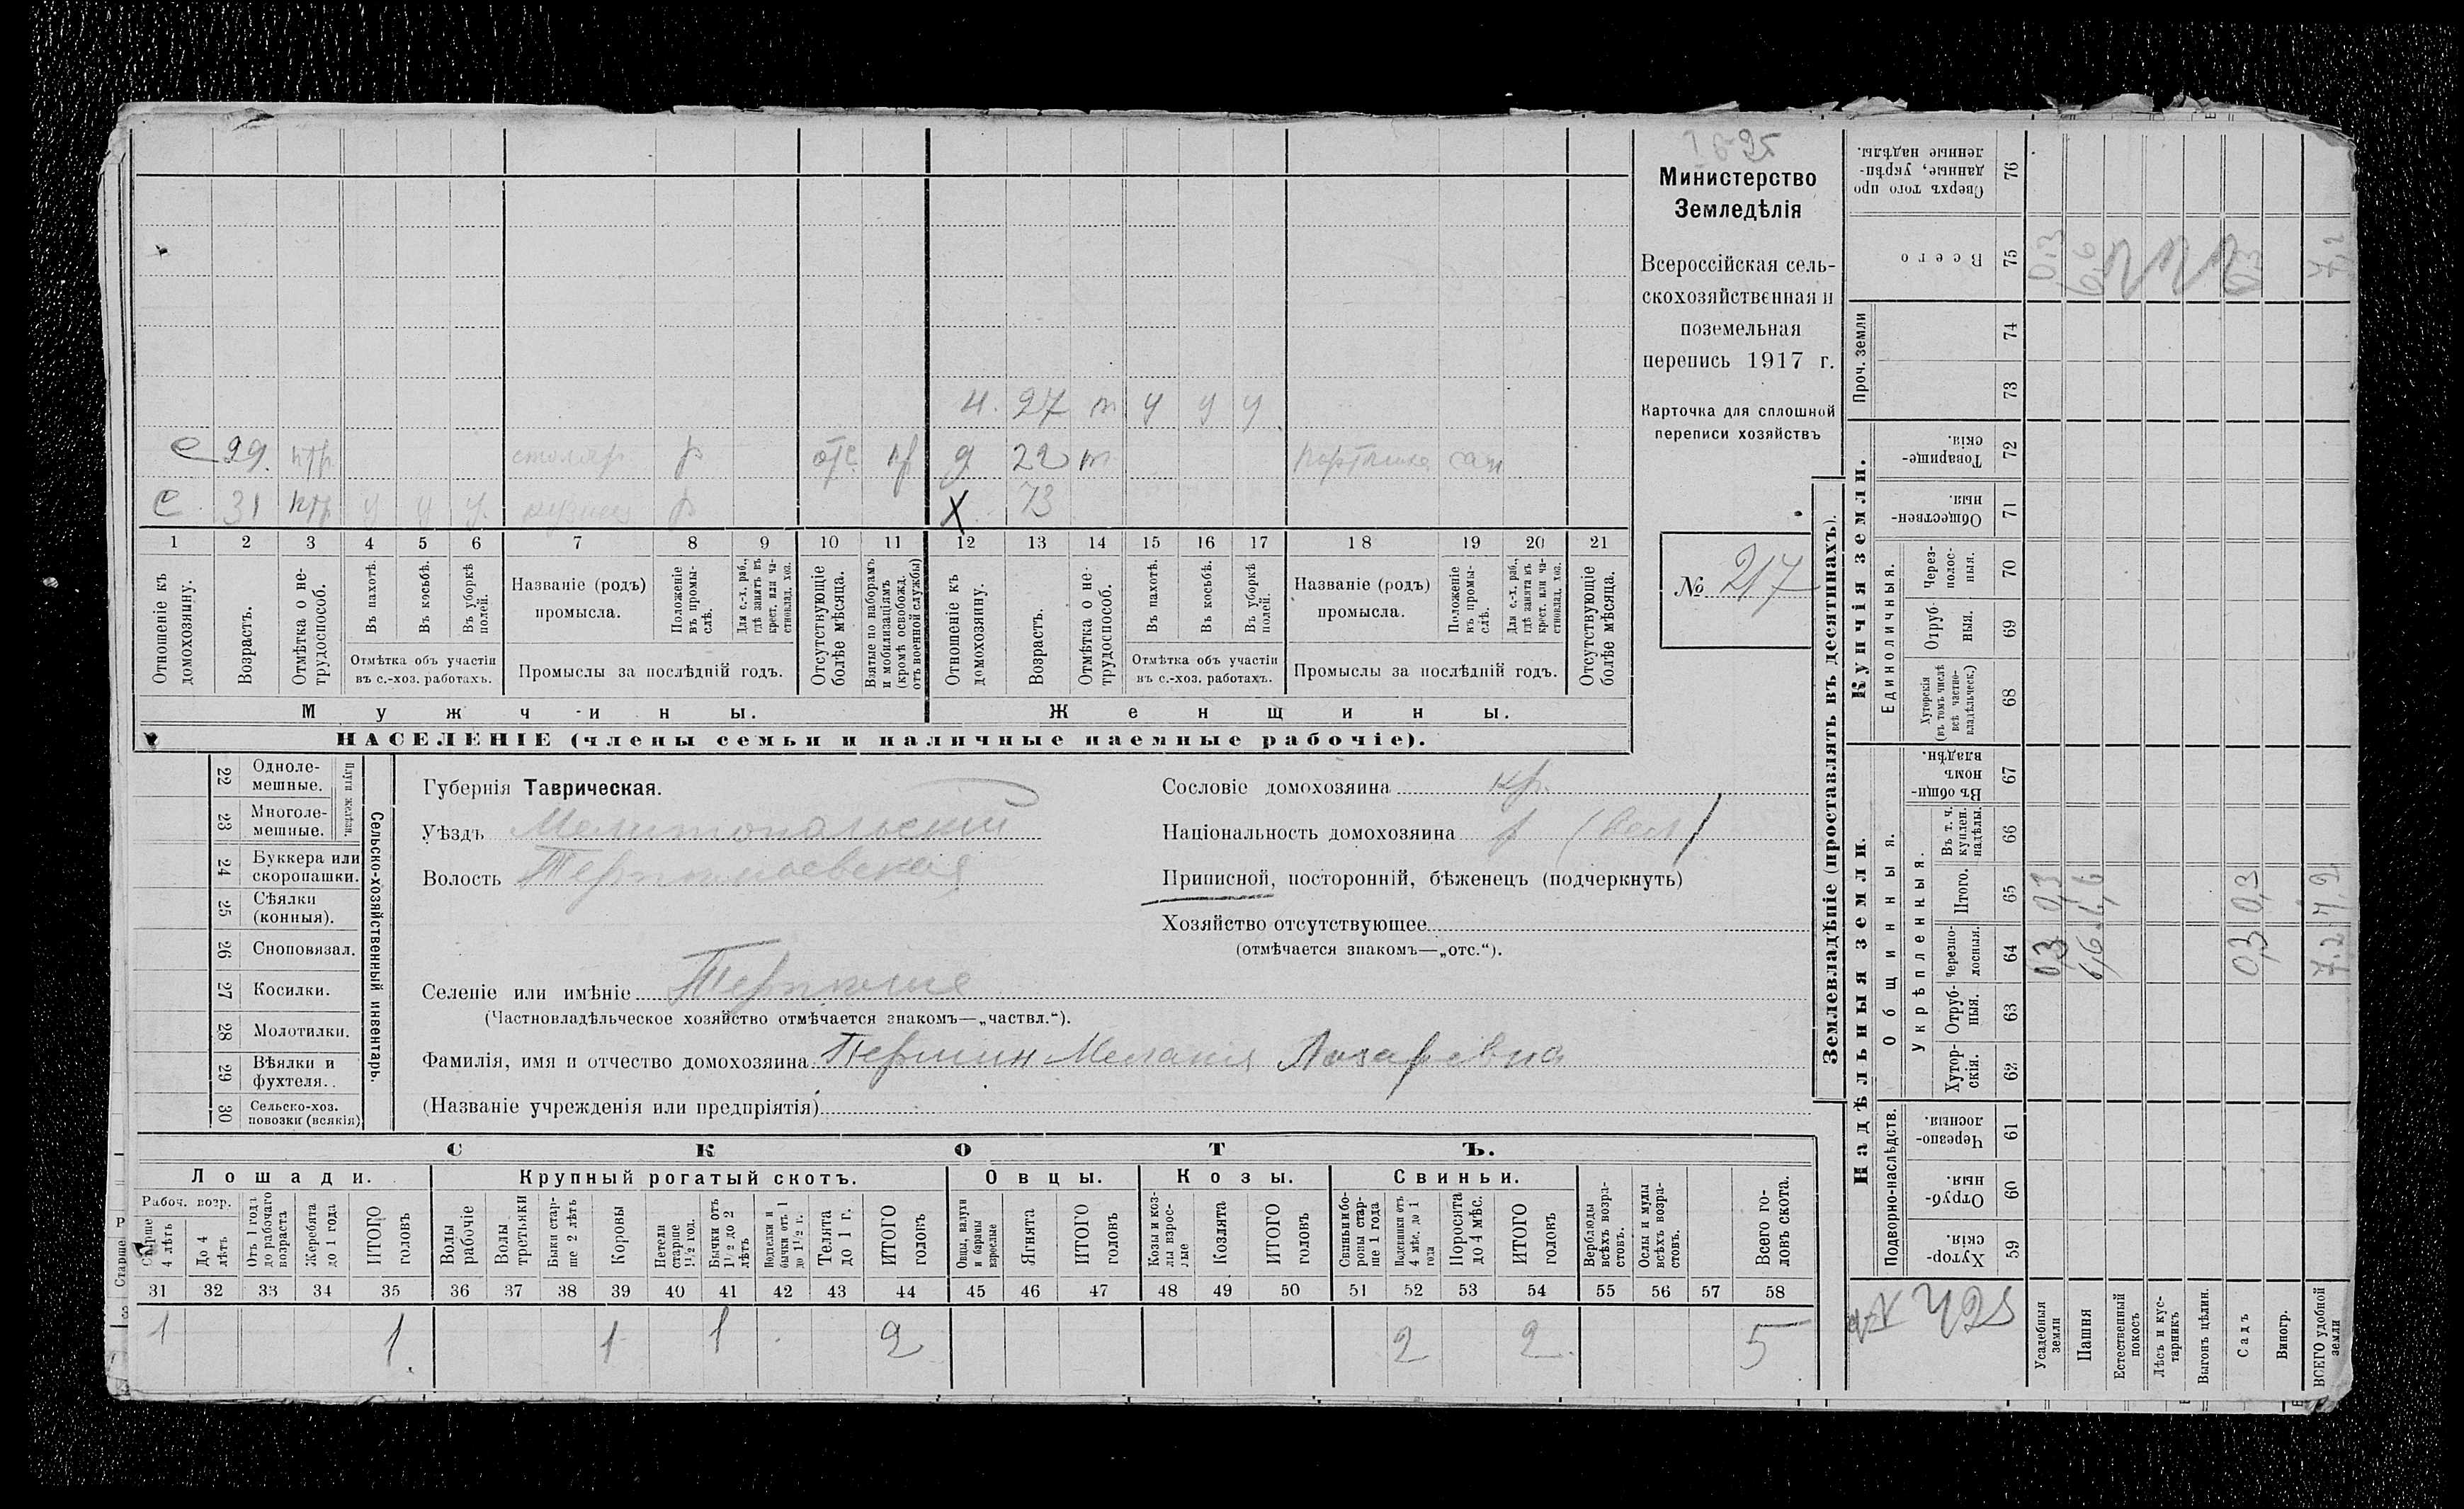 Министерство
Земледѣлія
Всероссійская сель-
скохозяйственная и
поземельная
перепись 1917 г.
Карточка для сплошной
переписи хозяйствъ
№ 217
ч. 27 т у у у
с 29. нтр. столяр. р отс. нр д 22 т портниха сам
с 31 нтр у у у. кузнец р х 73
1 2 3 4 5 6 7 8 9 10 11 12 13 14 15 16 17 18 19 20 21
Отношеніе къ домохозяину.
Возрастъ.
Отмѣтка о не-трудоспособ.
Въ пахотѣ.
Въ косьбѣ.
Въ уборкѣ полей.
Отмѣтка объ участіи въ с.-хоз. работахъ.
Названіе (родъ) промысла.
Положеніе въ промы-слѣ.
Для с.-х. раб., гдѣ занятъ въ крест. или ча-стновлад. хоз.
Промыслы за послѣдній годъ.
Отсутствующіе болѣе мѣсяца.
Взятые по наборамъ и мобилизаціямъ (кромѣ освобожд. отъ военной службы)
Отношеніе къ домохозяину.
Возрастъ.
Отмѣтка о не-трудоспособ.
Въ пахотѣ.
Въ косьбѣ.
Въ уборкѣ полей.
Отмѣтка объ участіи въ с.-хоз. работахъ.
Названіе (родъ) промысла.
Положеніе въ промы-слѣ.
Для с.-х. раб., гдѣ занята въ крест. или ча-стновлад. хоз.
Промыслы за послѣдній годъ.
Отсутствующіе болѣе мѣсяца.
Мужчины. Женщины.
НАСЕЛЕНІЕ (члены семьи и наличные наемные рабочіе).
Сельско-хозяйственный инвентарь.
Плуги желѣзн.
22 Однолемешные.
23 Многолемешные.
24 Буккера или скоропашки.
25 Сѣялки (конныя).
26 Сноповязал.
27 Косилки.
28 Молотилки.
29 Вѣялки и фухтеля..
30 Сельско-хоз. повозки (всякія)
Губернія Таврическая.
Уѣздъ Мелитопольский
Волость Терпениевская
Сословіе домохозяина кр.
Національность домохозяина р (вел)
Приписной, посторонній, бѣженецъ (подчеркнуть)
Хозяйство отсутствующее
(отмѣчается знакомъ—„отс.“).
Селеніе или имѣніе Терпение
(Частновладѣльческое хозяйство отмѣчается знакомъ—„частвл.“).
Фамилія, имя и отчество домохозяина Першин Мелания Лазаревна
(Названіе учрежденія или предпріятія)
СКОТЪ.
Лошади. Крупный рогатый скотъ. Овцы. Козы. Свиньи.
Рабоч. возр.
Старше 4 лѣтъ
До 4 лѣтъ
Отъ 1 года до рабочаго возраста
Жеребята до 1 года
ИТОГО головъ
Волы рабочіе
Волы третьяки
Быки стар-ше 2 лѣтъ
Коровы
Нетели старше 1½ год.
Бычки отъ 1½ до 2 лѣтъ
Подтелки и бычки отъ 1 до 1½ г.
Телята до 1 г.
ИТОГО головъ
Овцы, валухи и бараны взрослые
Ягнята
ИТОГО головъ
Козы и коз-лы взрос-лые
Козлята
ИТОГО головъ
Свиньи и бо-ровы стар-ше 1 года
Подсвинки отъ 4 мѣс. до 1 года
Поросята до 4 мѣс.
ИТОГО головъ
Верблюды всѣхъ возра-стовъ.
Ослы и мулы всѣхъ возра-стовъ.
Всего го-ловъ скота.
31 32 33 34 35 36 37 38 39 40 41 42 43 44 45 46 47 48 49 50 51 52 53 54 55 56 57 58
1 1 1 1 2 2 2 5
Землевладѣніе (проставлять въ десятинахъ).
Надѣльныя земли. Купчія земли. Проч. земли
Подворно-наслѣдств.
Общинныя.
Укрѣпленныя.
Единоличныя.
Хуторскія. 59
Отрубныя. 60
Черезполосныя. 61
Хуторскія. 62
Отрубныя. 63
Черезполосныя. 64
Итого. 65
Въ т. ч. куплен. надѣлы. 66
Въ общинномъ владѣн. 67
Хуторскія (въ томъ числѣ всѣ частновладѣльческ.) 68
Отрубныя. 69
Черезполосныя. 70
Общественныя. 71
Товарищескія. 72
73
74
Всего 75
Сверхъ того проданные, укрѣпленные надѣлы. 76
Усадебныя земли 0,3 0,3 0,3
Пашня 6,6 6,6 6,6
Естественный покосъ
Лѣсъ и кустарникъ
Выгонъ цѣлин.
Садъ 0,3 0,3 0,3
Виногр.
ВСЕГО удобной земли 7.2 7,2 7,2